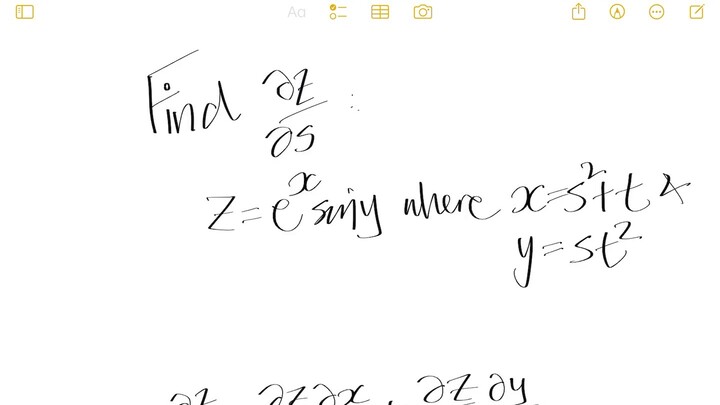 Aa
Find ∂z/∂s :
z = e^x sin y where x = s^2 + t &
y = st^2
∂z ∂z ∂x , ∂z ∂y